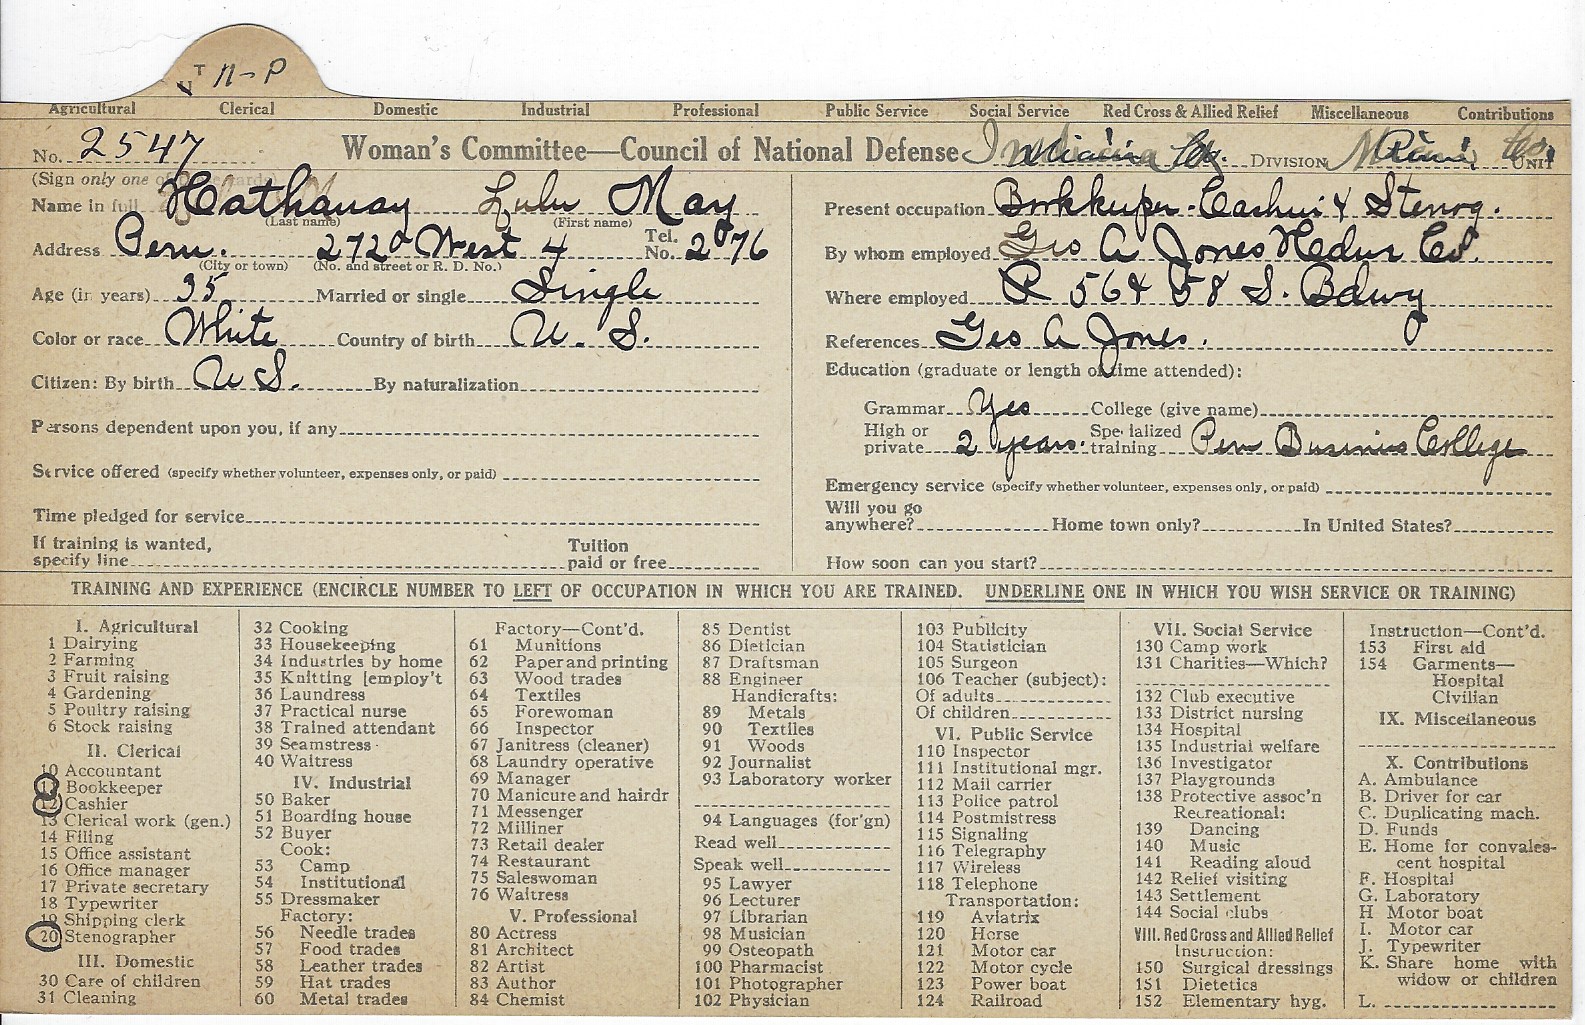 T N-P
Agricultural Clerical Domestic Industrial Professional Public Service Social Service Red Cross & Allied Relief Miscellaneous Contributions
No. 2547 Woman's Committee—Council of National Defense DIVISION UNIT
(Sign only one of
Name in full Hathaway Lulu May
(Last name) (First name)
Address Peru. West 4 Tel. No. 2076
(City or town) (No. and street or R. D. No.)
Age (in years) 35 Married or single Single
Color or race White Country of birth U. S.
Citizen: By birth U S. By naturalization
Persons dependent upon you, if any
Service offered (specify whether volunteer, expenses only, or paid)
Time pledged for service
If training is wanted,
specify line
Tuition
paid or free
Present occupation Bookkeeper-Cashier & Stenog.
By whom employed Geo A Jones Hdwr Co.
Where employed 58 S. Bdwy
References Geo A Jones.
Education (graduate or length of time attended):
Grammar Yes College (give name)
High or private 2 years. Specialized training Peru Business College
Emergency service (specify whether volunteer, expenses only, or paid)
Will you go
anywhere? Home town only? In United States?
How soon can you start?
TRAINING AND EXPERIENCE (ENCIRCLE NUMBER TO LEFT OF OCCUPATION IN WHICH YOU ARE TRAINED. UNDERLINE ONE IN WHICH YOU WISH SERVICE OR TRAINING)
I. Agricultural
1 Dairying
2 Farming
3 Fruit raising
4 Gardening
5 Poultry raising
6 Stock raising
II. Clerical
10 Accountant
11 Bookkeeper
12 Cashier
13 Clerical work (gen.)
14 Filing
15 Office assistant
16 Office manager
17 Private secretary
18 Typewriter
19 Shipping clerk
20 Stenographer
III. Domestic
30 Care of children
31 Cleaning
32 Cooking
33 Housekeeping
34 Industries by home
35 Knitting [employ't
36 Laundress
37 Practical nurse
38 Trained attendant
39 Seamstress
40 Waitress
IV. Industrial
50 Baker
51 Boarding house
52 Buyer
Cook:
53 Camp
54 Institutional
55 Dressmaker
Factory:
56 Needle trades
57 Food trades
58 Leather trades
59 Hat trades
60 Metal trades
Factory—Cont'd.
61 Munitions
62 Paper and printing
63 Wood trades
64 Textiles
65 Forewoman
66 Inspector
67 Janitress (cleaner)
68 Laundry operative
69 Manager
70 Manicure and hairdr
71 Messenger
72 Milliner
73 Retail dealer
74 Restaurant
75 Saleswoman
76 Waitress
V. Professional
80 Actress
81 Architect
82 Artist
83 Author
84 Chemist
85 Dentist
86 Dietician
87 Draftsman
88 Engineer
Handicrafts:
89 Metals
90 Textiles
91 Woods
92 Journalist
93 Laboratory worker
94 Languages (for'gn)
Read well
Speak well
95 Lawyer
96 Lecturer
97 Librarian
98 Musician
99 Osteopath
100 Pharmacist
101 Photographer
102 Physician
103 Publicity
104 Statistician
105 Surgeon
106 Teacher (subject):
Of adults
Of children
VI. Public Service
110 Inspector
111 Institutional mgr.
112 Mail carrier
113 Police patrol
114 Postmistress
115 Signaling
116 Telegraphy
117 Wireless
118 Telephone
Transportation:
119 Aviatrix
120 Horse
121 Motor car
122 Motor cycle
123 Power boat
124 Railroad
VII. Social Service
130 Camp work
131 Charities—Which?
132 Club executive
133 District nursing
134 Hospital
135 Industrial welfare
136 Investigator
137 Playgrounds
138 Protective assoc'n
Recreational:
139 Dancing
140 Music
141 Reading aloud
142 Relief visiting
143 Settlement
144 Social clubs
VIII. Red Cross and Allied Relief
Instruction:
150 Surgical dressings
151 Dietetics
152 Elementary hyg.
Instruction—Cont'd.
153 First aid
154 Garments—
Hospital
Civilian
IX. Miscellaneous
X. Contributions
A. Ambulance
B. Driver for car
C. Duplicating mach.
D. Funds
E. Home for convales-
cent hospital
F. Hospital
G. Laboratory
H Motor boat
I. Motor car
J. Typewriter
K. Share home with
widow or children
L.